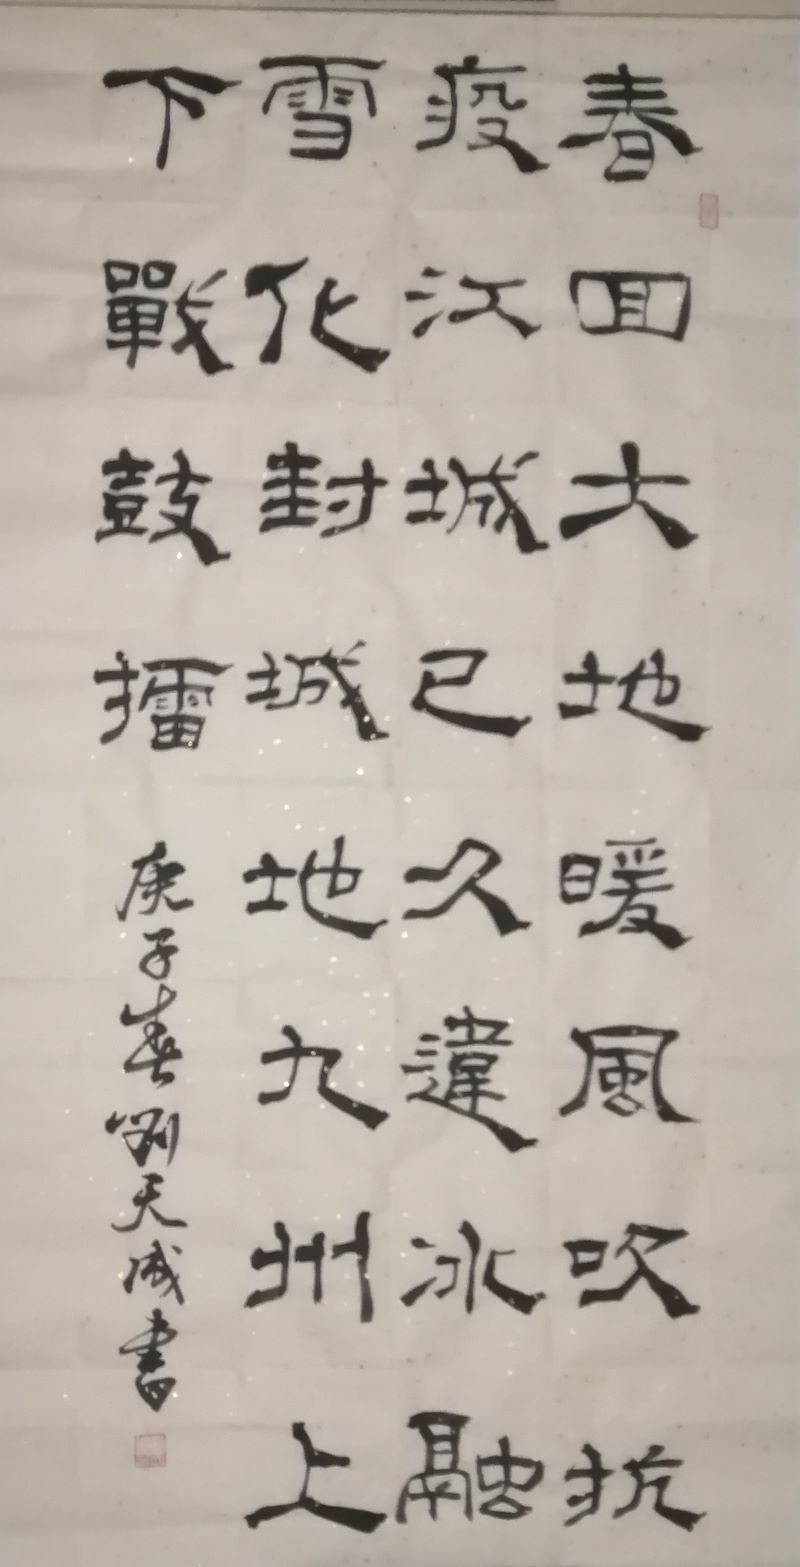 春回大地暖風吹抗
疫江城已久違冰融
雪化封城地九州上
下戰鼓擂
庚子春劉天成書